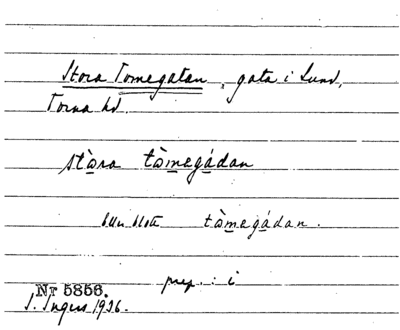 Stora Tomegatan, gata i Lund,
Torna hd.
stòra tòmegádan
eller blott tòmegádan.
prep.: i
Nr 5856.
I. Ingers 1936.